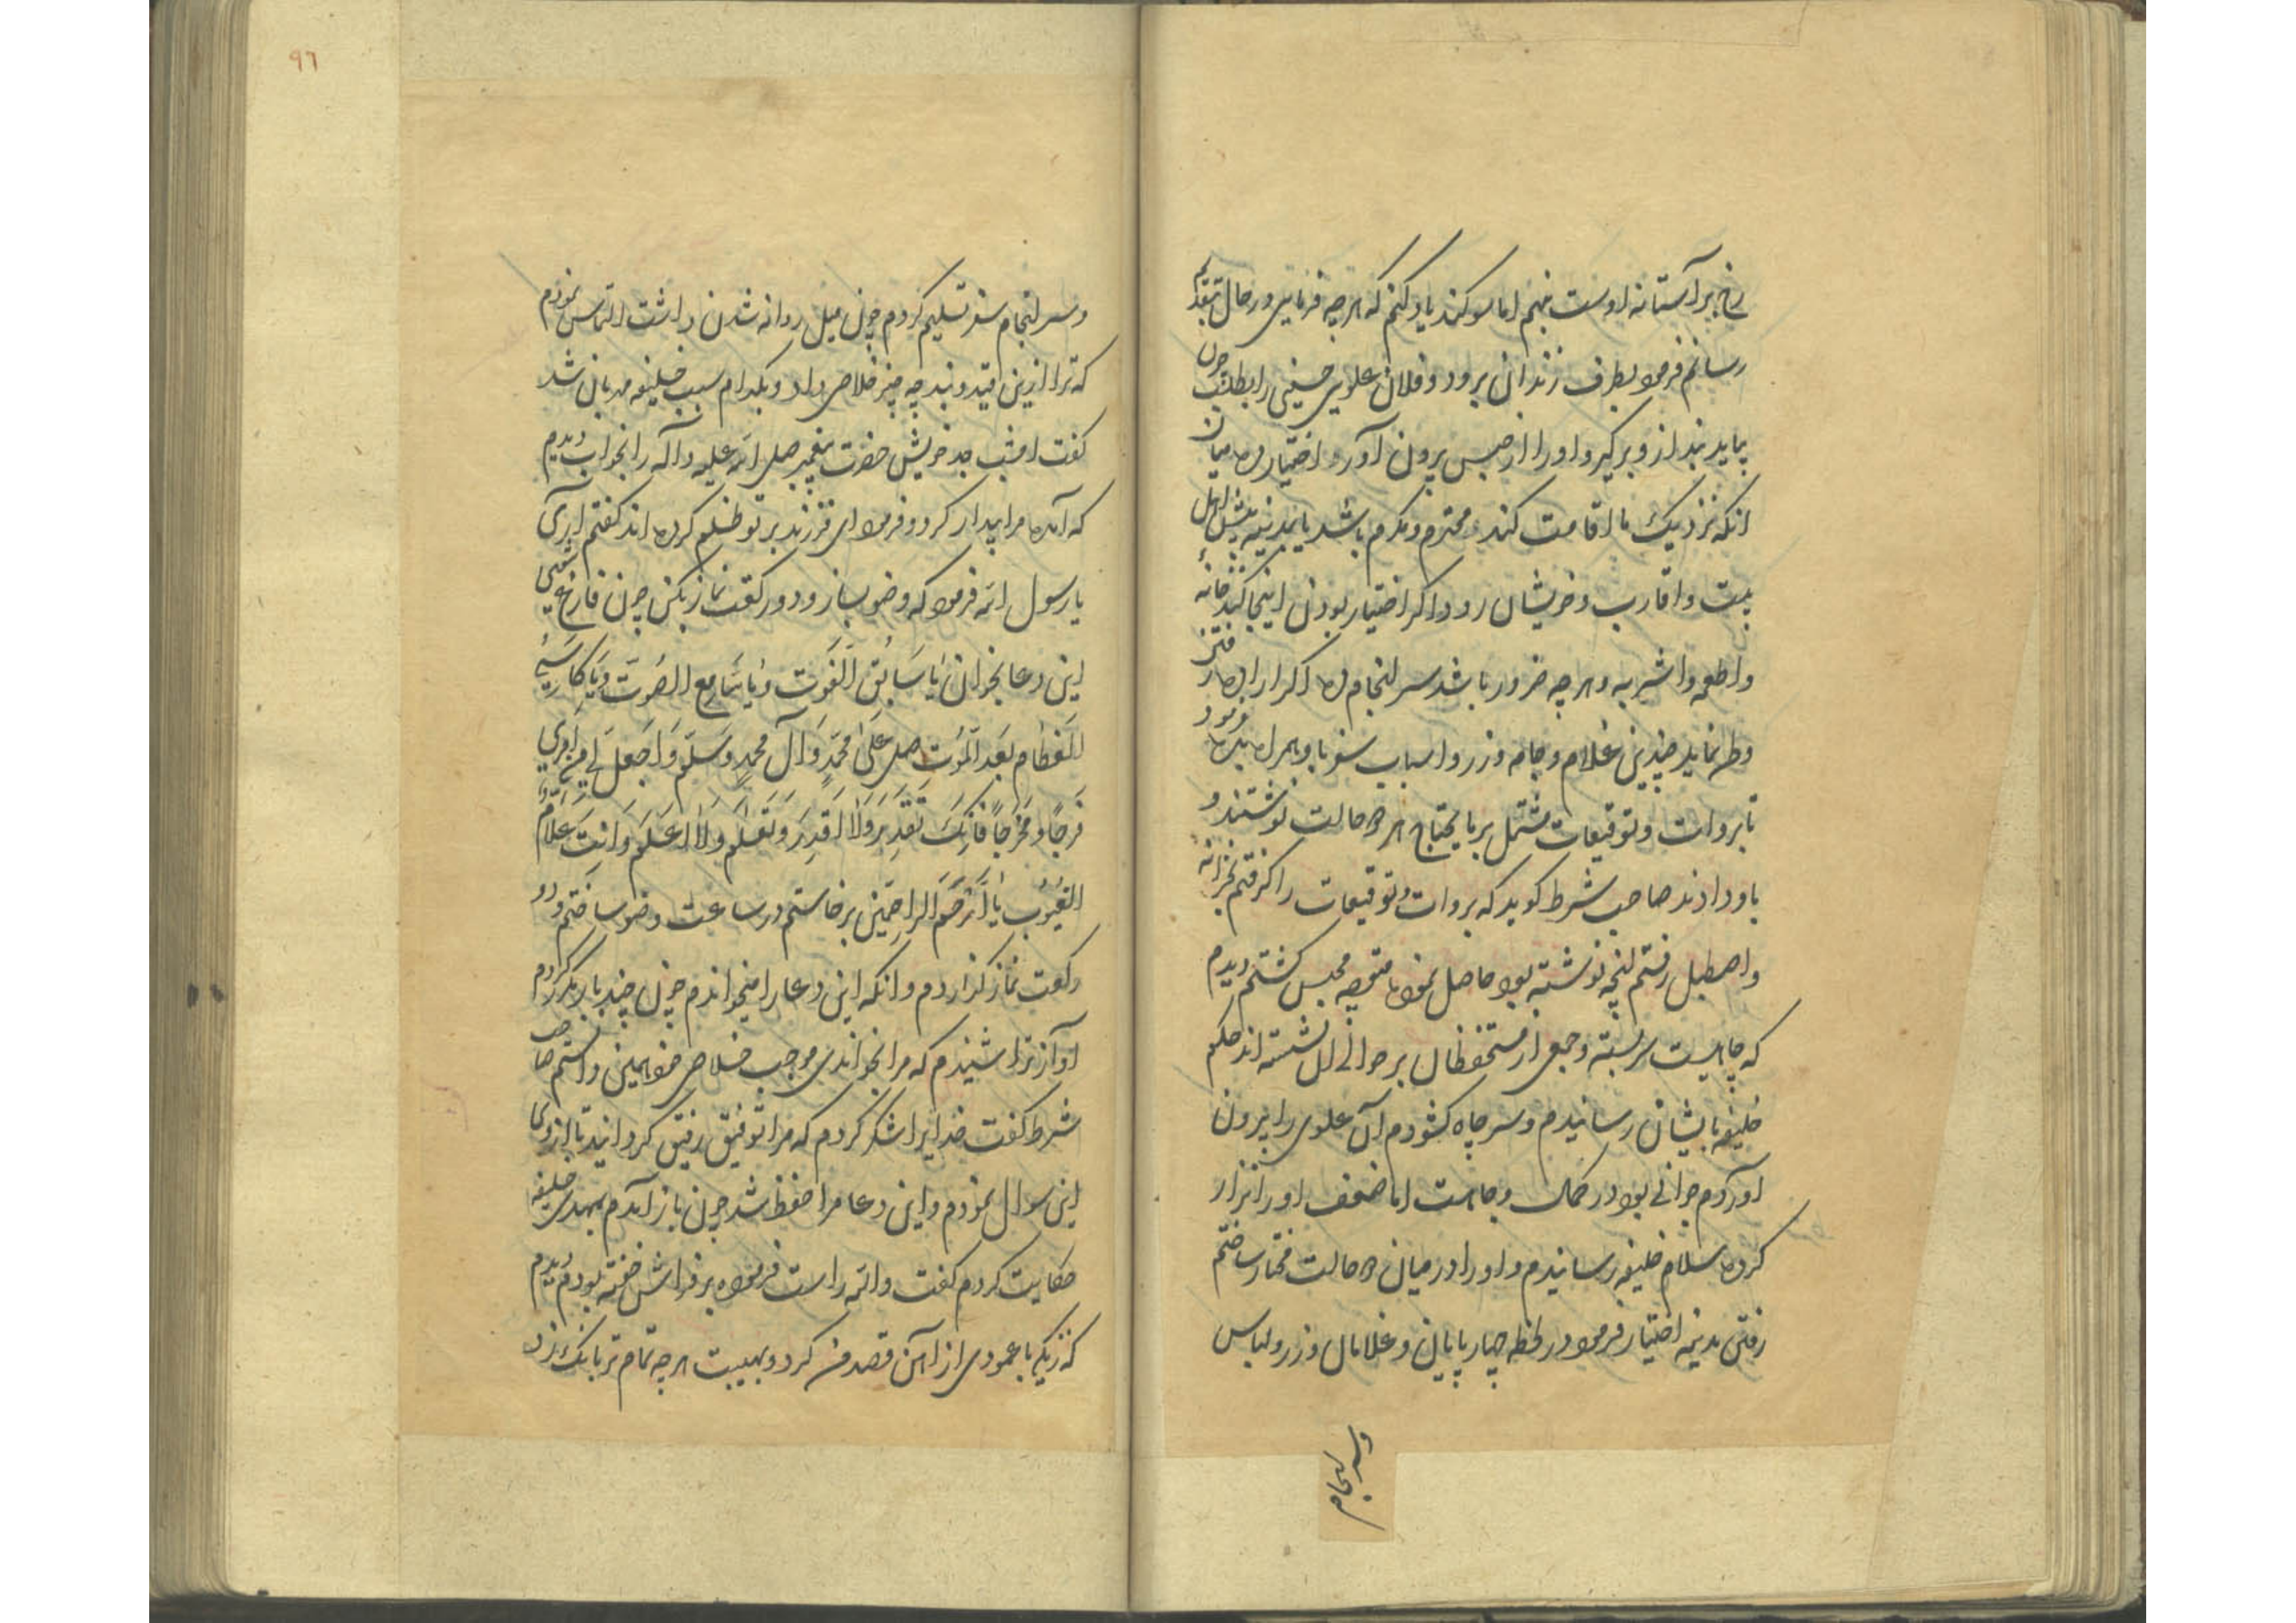 رخ بر آستانه اوست بنهم اما سوکند یاد کنم که هر چه فرمایی در حال بتقدیم
رسانم فرمود بطرف زندان برود و فلان علوی حسینی را بطلب چون
بیاید بند ازو برگیر و او را از حبس برون آور و اختیار ده میان
انکه نزدیک ما اقامت کند محترم و مکرم باشد یا بمدینه پیش اهل
بیت و اقارب و خویشان رود اکر اختیار بودن اینجا کند خانه
و اطعمه و اشربه و هر چه ضرور باشد سرانجام ده اکر اراده رفتن
وطن نماید چندین غلام و جامه و زر و اسباب سفر با و همراه بده فرمود
تا بروات و توقیعات مشتمل بر مایحتاج هر دو حالت نوشتند و
باو دادند صاحب شرط کوید که بروات و توقیعات را کرفتم بخزانه
و اصطبل رفتم انچه نوشته بود حاصل نموده متوجه محبس کشتم دیدم
که چاهیست سربسته و جمعی از مستحفظان بر حوالی ان نشسته اند حکم
خلیفه بایشان رسانیدم و سر چاه کشودم آن علوی را بیرون
آوردم جوانی بود در کمال وجاهت اما ضعف او را نزار
کرده سلام خلیفه رسانیدم و او را در میان دو حالت مختار ساختم
رفتن مدینه اختیار فرمود در لحظه چهارپایان و غلامان و زر و لباس
وسرانجام
٩٦
و سرانجام سفر تسلیم کردم چون میل روانه شدن داشت التماس نمودم
که ترا ازین قید و بند چه چیز خلاصی داد و بکدام سبب خلیفه مهربان شد
کفت امشب جد خویش حضرت پیغمبر صلی الله علیه و آله را بخواب دیدم
که آمده مرا بیدار کرد و فرمود ای فرزند بر تو ظلم کرده اند کفتم آری
یا رسول الله فرمود که وضو بساز و دو رکعت نماز بکن چون فارغ شوی
این دعا بخوان یَا سَابِقَ الفَوت وَیَا سَامِعَ الصَّوت وَیَا کَاسِیَ
العِظَام بَعدَ المَوت صَلِّ عَلَی مُحَمَّدٍ وَآلِ مُحَمَّدٍ وَسَلِّم وَاجعَل لِی مِن اَمرِی
فَرَجًا وَمَخرَجًا فَاِنَّکَ تَقدِرُ وَلَا اَقدِر وَتَعلَمُ وَلَا اَعلَمُ وَاَنتَ عَلَّامُ
الغُیُوب یَا اَرحَمَ الرَاحِمِین برخاستم در ساعت وضو ساختم و دو
رکعت نماز کزاردم و انکه این دعا را میخواندم چون چند بار بکردم
آواز ترا شنیدم که مرا بخواندی موجب خلاص خود همین دانستم صاحب
شرط کفت خدایرا شکر کردم که مرا توفیق رفیق کردانید تا از وی
این سوال نمودم و این دعا مرا حفظ شد چون باز آمدم بمهدی خلیفه
حکایت کردم کفت والله راست فرموده بر فراش خفته بودم دیدم
که زنکیی با عمودی از آهن قصد من کرد و بهیبت هر چه تمام تر بانک زد